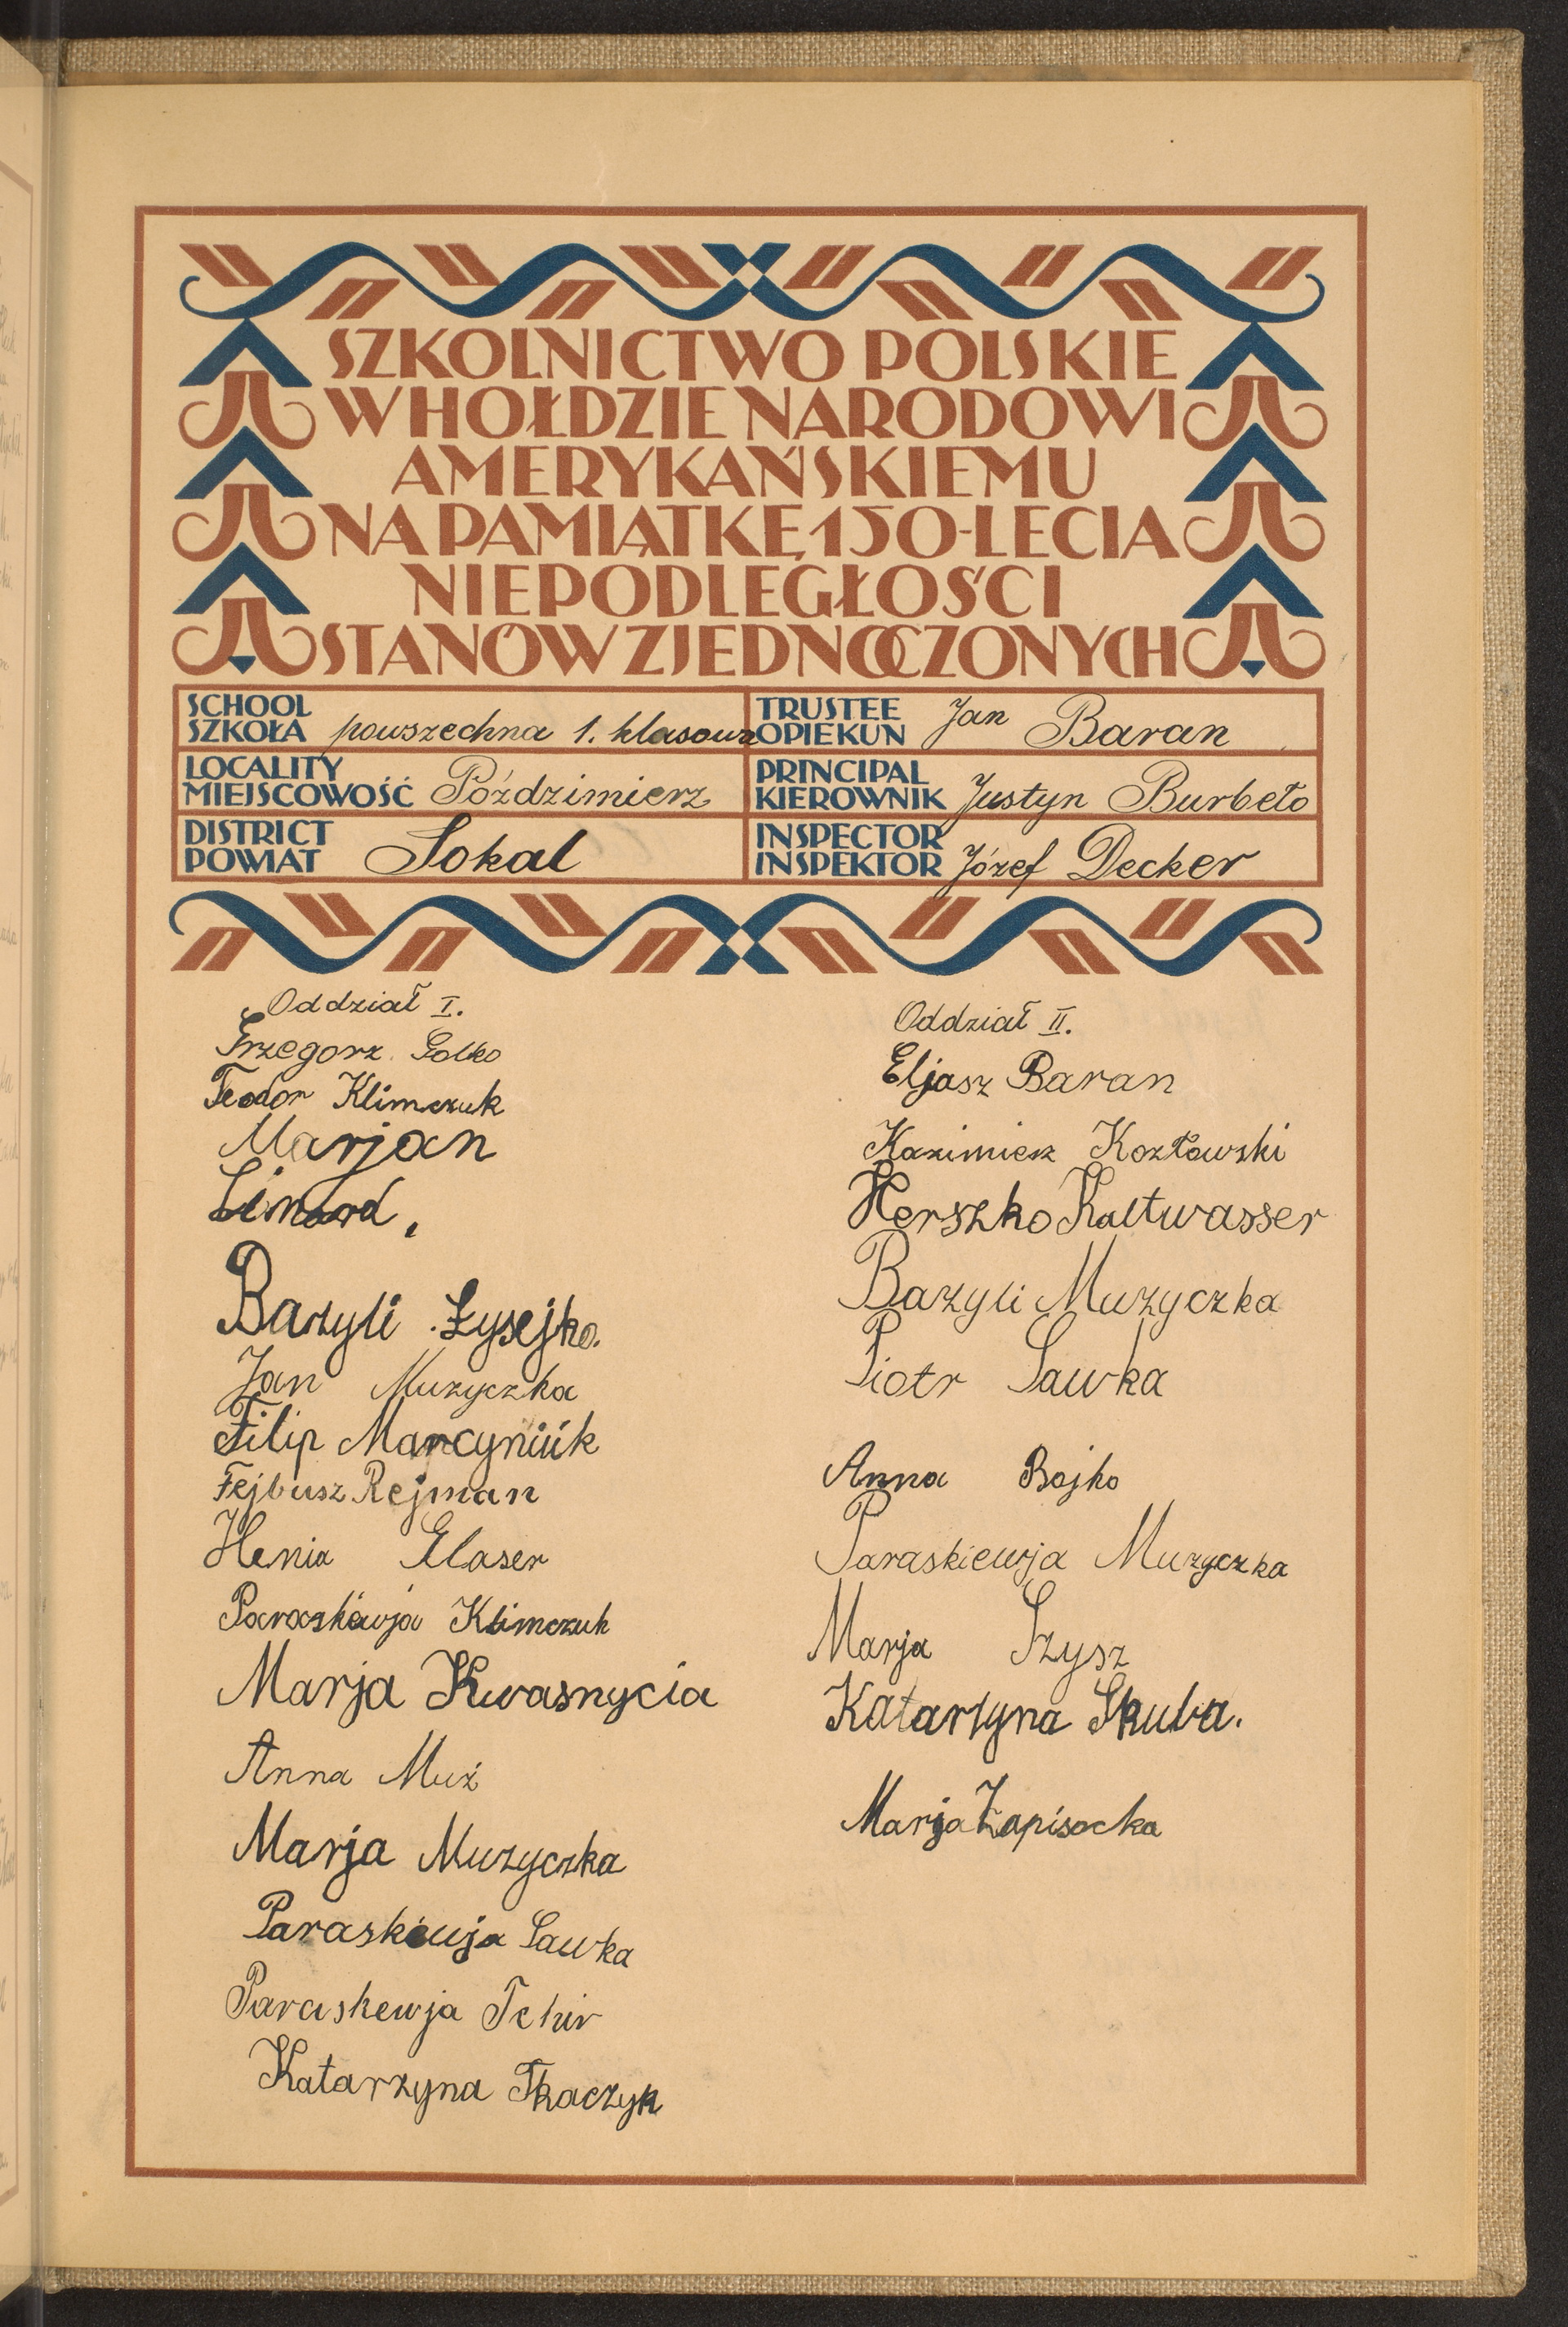 SZKOLNICTWO POLSKIE
W HOŁDZIE NARODOWI
AMERYKAŃSKIEMU
NA PAMIĄTKĘ 150-LECIA
NIEPODLEGŁOŚCI
STANÓW ZJEDNOCZONYCH
SCHOOL
SZKOŁA powszechna 1. klasowa
LOCALITY
MIEJSCOWOŚĆ Póździmierz
DISTRICT
POWIAT Sokal
TRUSTEE
OPIEKUN Jan Baran
PRINCIPAL
KIEROWNIK Justyn Burbeło
INSPECTOR
INSPEKTOR Józef Decker
Oddział I.
Grzegorz Golko
Teodor Klimczuk
Marjan
Linard.
Bazyli Łysejko.
Jan Muzyczka
Filip Marcyniuk
Fejbusz Rejman
Henia Glaser
Paraskewja Klimczuk
Marja Kwasnycia
Anna Muź
Marja Muzyczka
Paraskewja Sawka
Paraskewja Tchir
Katarzyna Tkaczyk
Oddział II.
Eljasz Baran
Kazimierz Kozłowski
Herszko Kaltwasser
Bazyli Muzyczka
Piotr Sawka
Anna Bojko
Paraskiewja Muzyczka
Marja Szysz
Katarzyna Skuba.
Marja Zapisocka